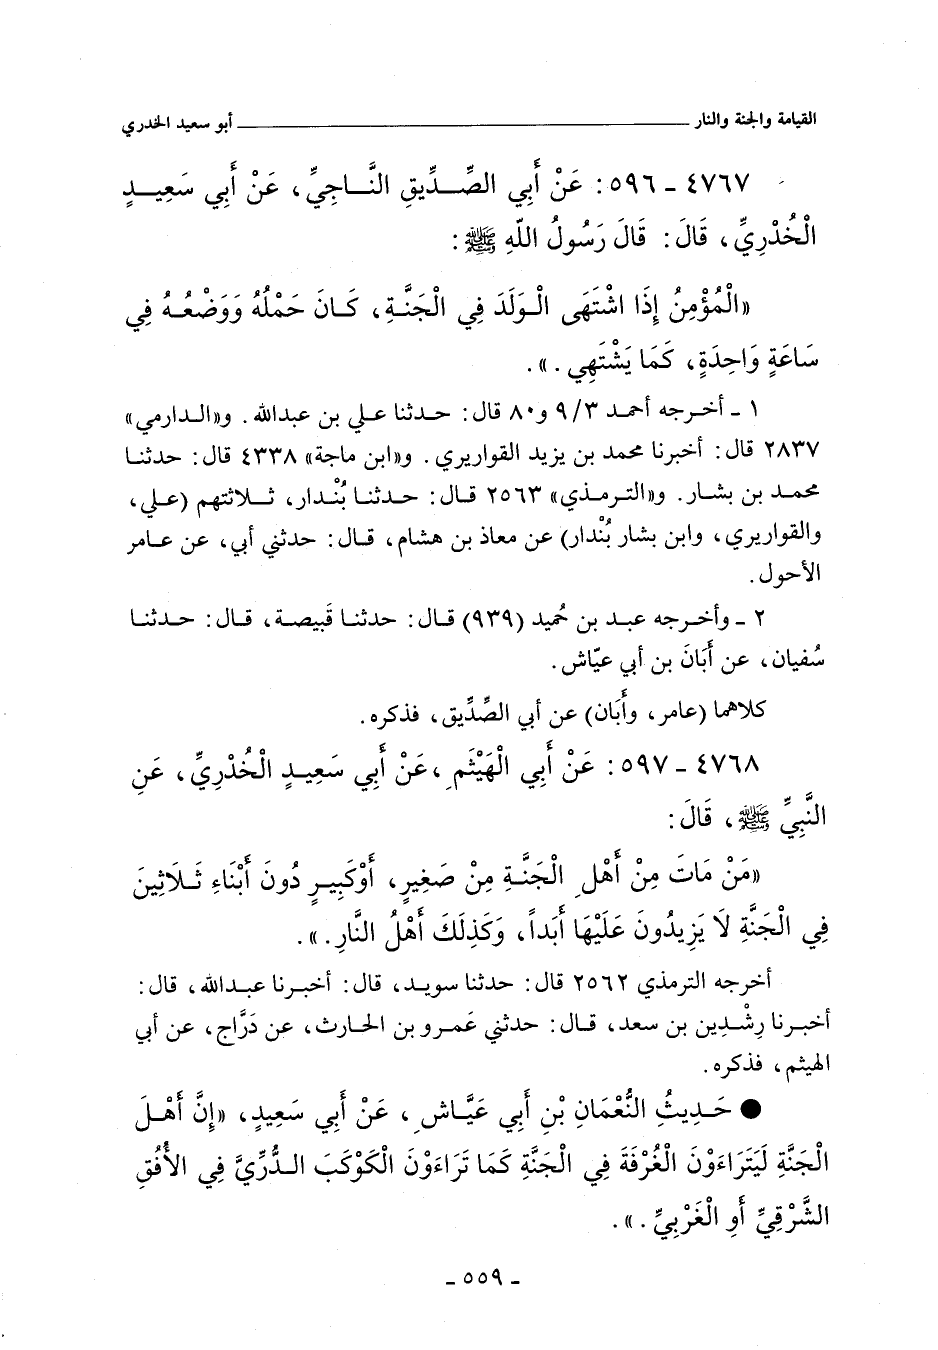 القيامة والجنة والنار ــــــــ أبو سعيد الخدري
٤٧٦٧ ـ ٥٩٦: عَنْ أَبِي الصِّدِّيقِ النَّاجِيِّ، عَنْ أَبِي سَعِيدٍ
الْخُدْرِيِّ، قَالَ: قَالَ رَسُولُ اللَّهِ ﷺ:
«الْمُؤْمِنُ إِذَا اشْتَهَى الْوَلَدَ فِي الْجَنَّةِ، كَانَ حَمْلُهُ وَوَضْعُهُ فِي
سَاعَةٍ وَاحِدَةٍ، كَمَا يَشْتَهِي.».
١ ـ أخرجه أحمد ٩/٣ و٨٠ قال: حدثنا علي بن عبدالله. و«الدارمي»
٢٨٣٧ قال: أخبرنا محمد بن يزيد القواريري. و«ابن ماجة» ٤٣٣٨ قال: حدثنا
محمد بن بشار. و«الترمذي» ٢٥٦٣ قال: حدثنا بُنْدار، ثلاثتهم (علي،
والقواريري، وابن بشار بُنْدار) عن معاذ بن هشام، قال: حدثني أبي، عن عامر
الأحول.
٢ ـ وأخرجه عبد بن حُميد (٩٣٩) قال: حدثنا قَبيصة، قال: حدثنا
سُفيان، عن أَبَانَ بن أبي عيّاش.
كلاهما (عامر، وأَبَان) عن أبي الصِّدِّيق، فذكره.
٤٧٦٨ ـ ٥٩٧: عَنْ أَبِي الْهَيْثَمِ، عَنْ أَبِي سَعِيدٍ الْخُدْرِيِّ، عَنِ
النَّبِيِّ ﷺ، قَالَ:
«مَنْ مَاتَ مِنْ أَهْلِ الْجَنَّةِ مِنْ صَغِيرٍ، أَوْكَبِيرٍ دُونَ أَبْنَاءِ ثَلَاثِينَ
فِي الْجَنَّةِ لَا يَزِيدُونَ عَلَيْهَا أَبَداً، وَكَذَلِكَ أَهْلُ النَّارِ.».
أخرجه الترمذي ٢٥٦٢ قال: حدثنا سويد، قال: أخبرنا عبدالله، قال:
أخبرنا رِشْدِين بن سعد، قال: حدثني عَمرو بن الحارث، عن دَرَّاج، عن أبي
الهيثم، فذكره.
● حَدِيثُ النُّعْمَانِ بْنِ أَبِي عَيَّاشٍ، عَنْ أَبِي سَعِيدٍ، «إِنَّ أَهْلَ
الْجَنَّةِ لَيَتَرَاءَوْنَ الْغُرْفَةَ فِي الْجَنَّةِ كَمَا تَرَاءَوْنَ الْكَوْكَبَ الدُّرِّيَّ فِي الأُفُقِ
الشَّرْقِيِّ أَوِ الْغَرْبِيِّ.».
ـ ٥٥٩ ـ